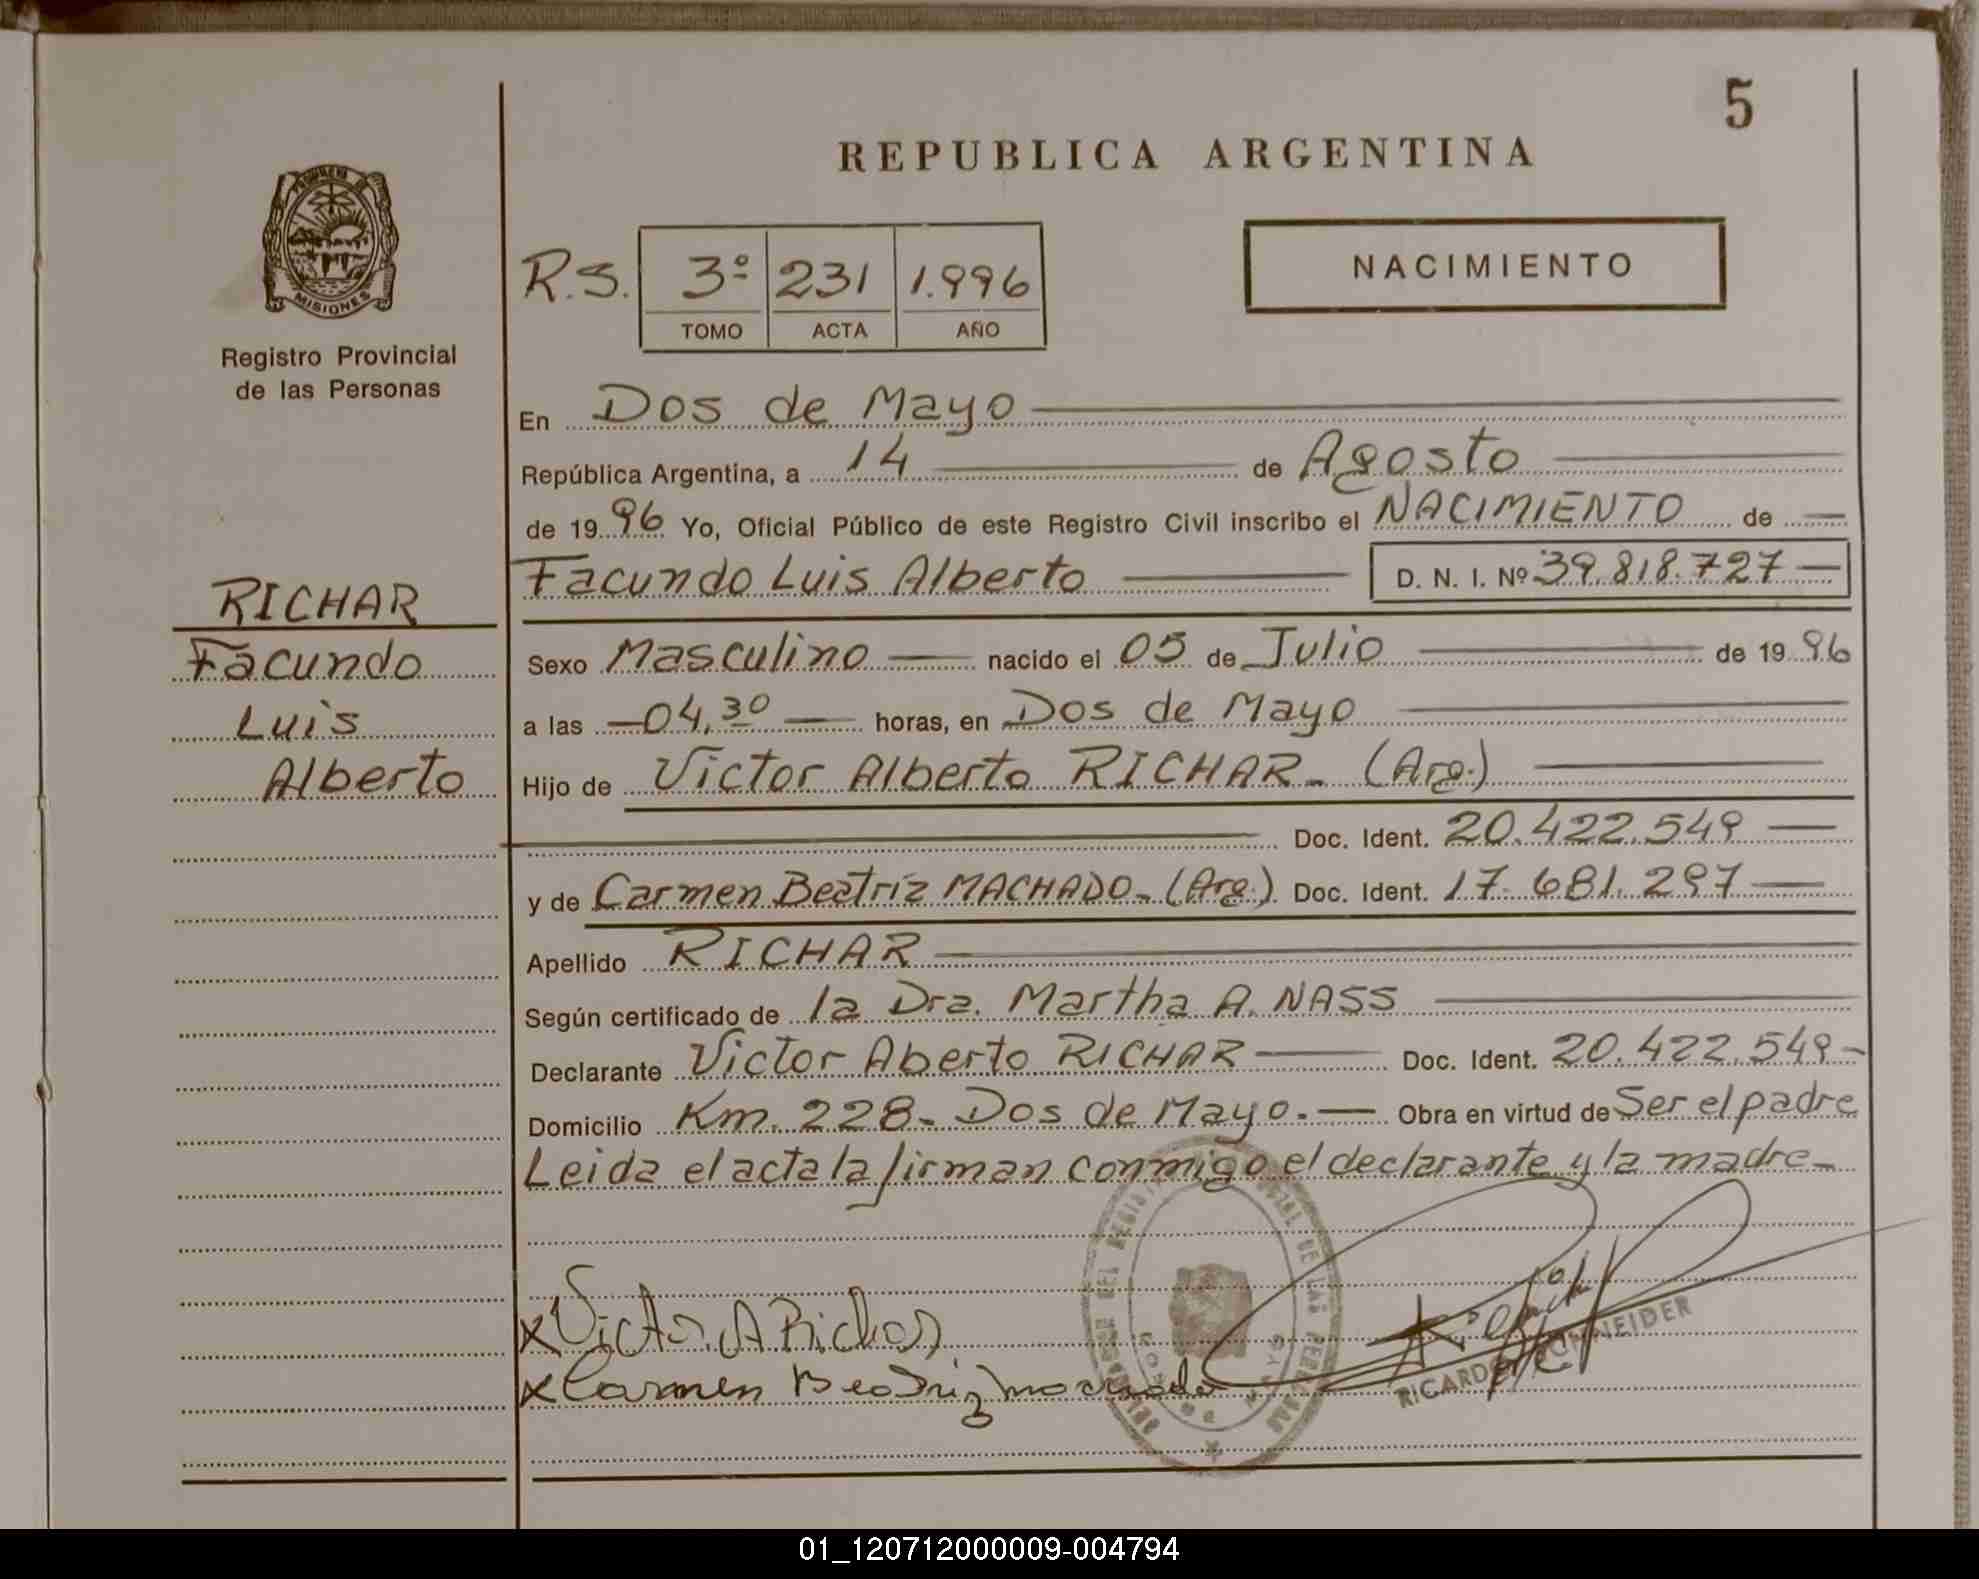 5
REPUBLICA ARGENTINA
PROVINCIA DE
MISIONES
Registro Provincial
de las Personas
R.S. 3º 231 1.996
TOMO ACTA AÑO
NACIMIENTO
En Dos de Mayo
República Argentina, a 14 de Agosto
de 1996 Yo, Oficial Público de este Registro Civil inscribo el NACIMIENTO de
Facundo Luis Alberto D. N. I. Nº 39.818.727
RICHAR
Facundo
Luis
Alberto
Sexo Masculino nacido el 05 de Julio de 1996
a las 04,30 horas, en Dos de Mayo
Hijo de Victor Alberto RICHAR - (Arg.)
Doc. Ident. 20.422.549
y de Carmen Beatriz MACHADO - (Arg.) Doc. Ident. 17.681.297
Apellido RICHAR
Según certificado de la Dra. Martha A. NASS
Declarante Victor Aberto RICHAR Doc. Ident. 20.422.549
Domicilio Km. 228 - Dos de Mayo. - Obra en virtud de Ser el padre
Leida el acta la firman conmigo el declarante y la madre -
x Victor A Richar
x Carmen Beatriz machado
RICARDO SCHNEIDER
01_120712000009-004794